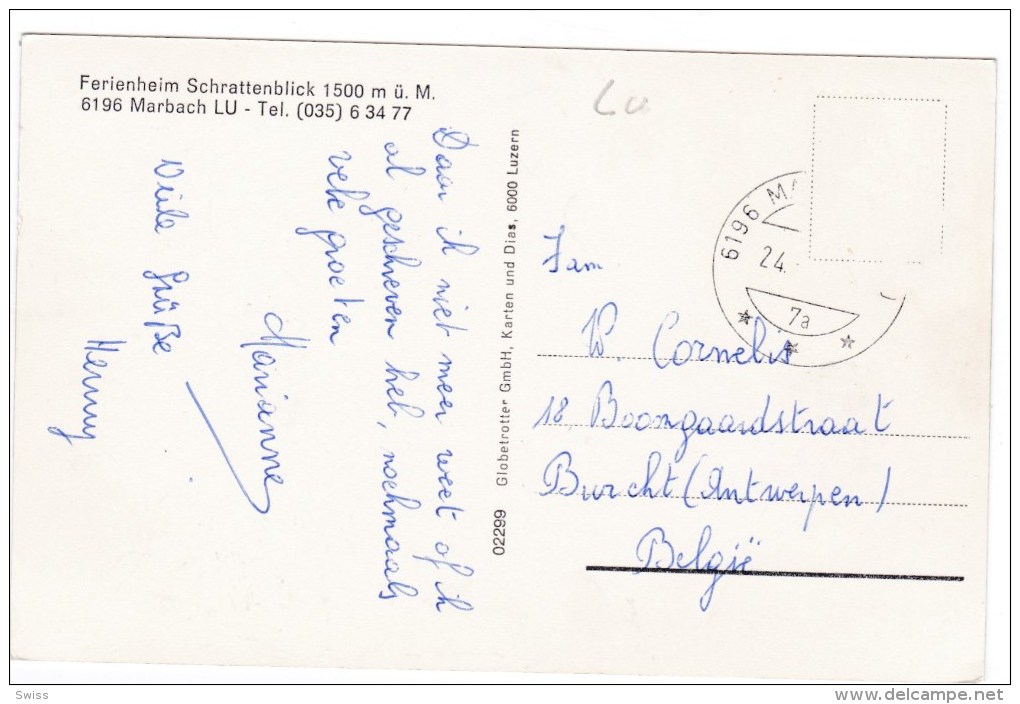 Ferienheim Schrattenblick 1500 m ü. M.
6196 Marbach LU - Tel. (035) 6 34 77
Daar ik niet meer weet of ik
al geschreven heb, nochmaals
vele groeten
Marianne
Viele Grüße
Henny
02299 Globetrotter GmbH, Karten und Dias, 6000 Luzern
Lu
6196 MA
24.
7a
Fam
W. Cornelis
18, Boomgaardstraat
Burcht (Antwerpen)
België
Swiss
delcampe.net